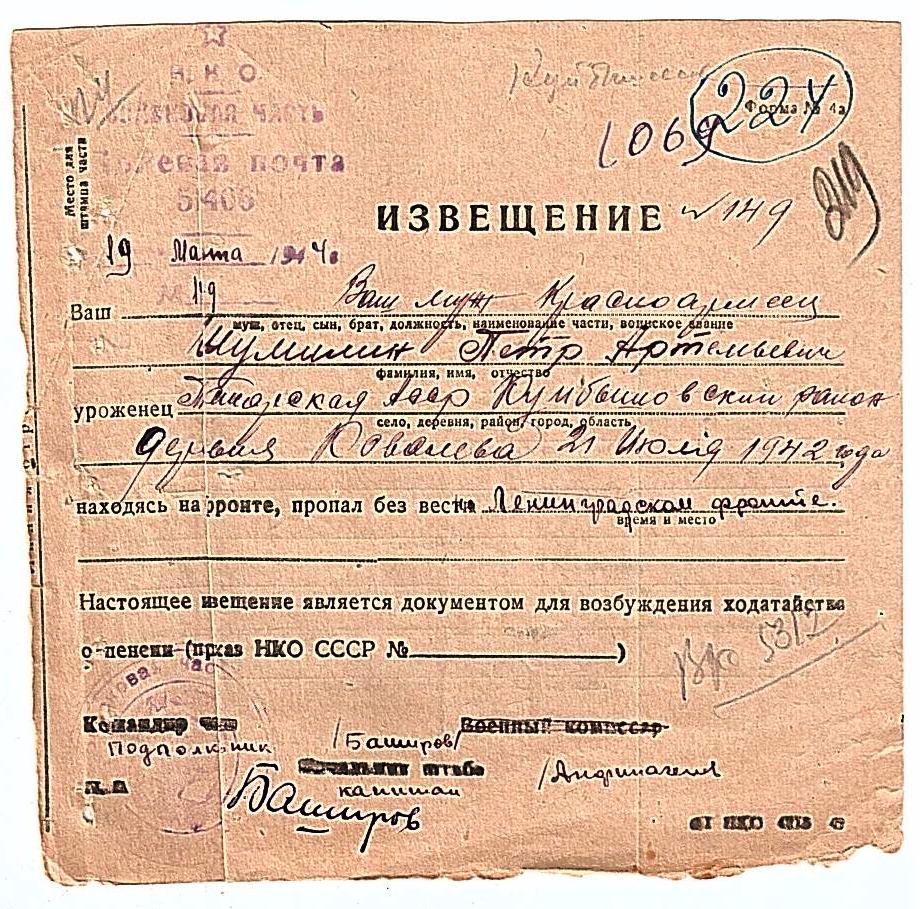 Н К О
ВОИНСКАЯ ЧАСТЬ
Полевая почта
Форма № 4а
224
1069
Место для
штампа части
ИЗВЕЩЕНИЕ № 149
19 Марта 1944.
119
Ваш Ваш муж Красноармеец
муж, отец, сын, брат, должность, наименование части, воинское звание
Шумилин Петр Артемьевич
фамилия, имя, отчество
уроженец Татарская Асср Куйбышовский район
село, деревня, район, город, область
деревня Ковалева 21 Июля 1942 года
находясь на фронте, пропал без вести на Ленинградском фронте.
время и место
Настоящее извещение является документом для возбуждения ходатайства
о пенсии (приказ НКО СССР № )
5312
Командир части Военный комиссар
Подполковник /Баширов/
Начальник штаба
капитан
М.П.
Баширов